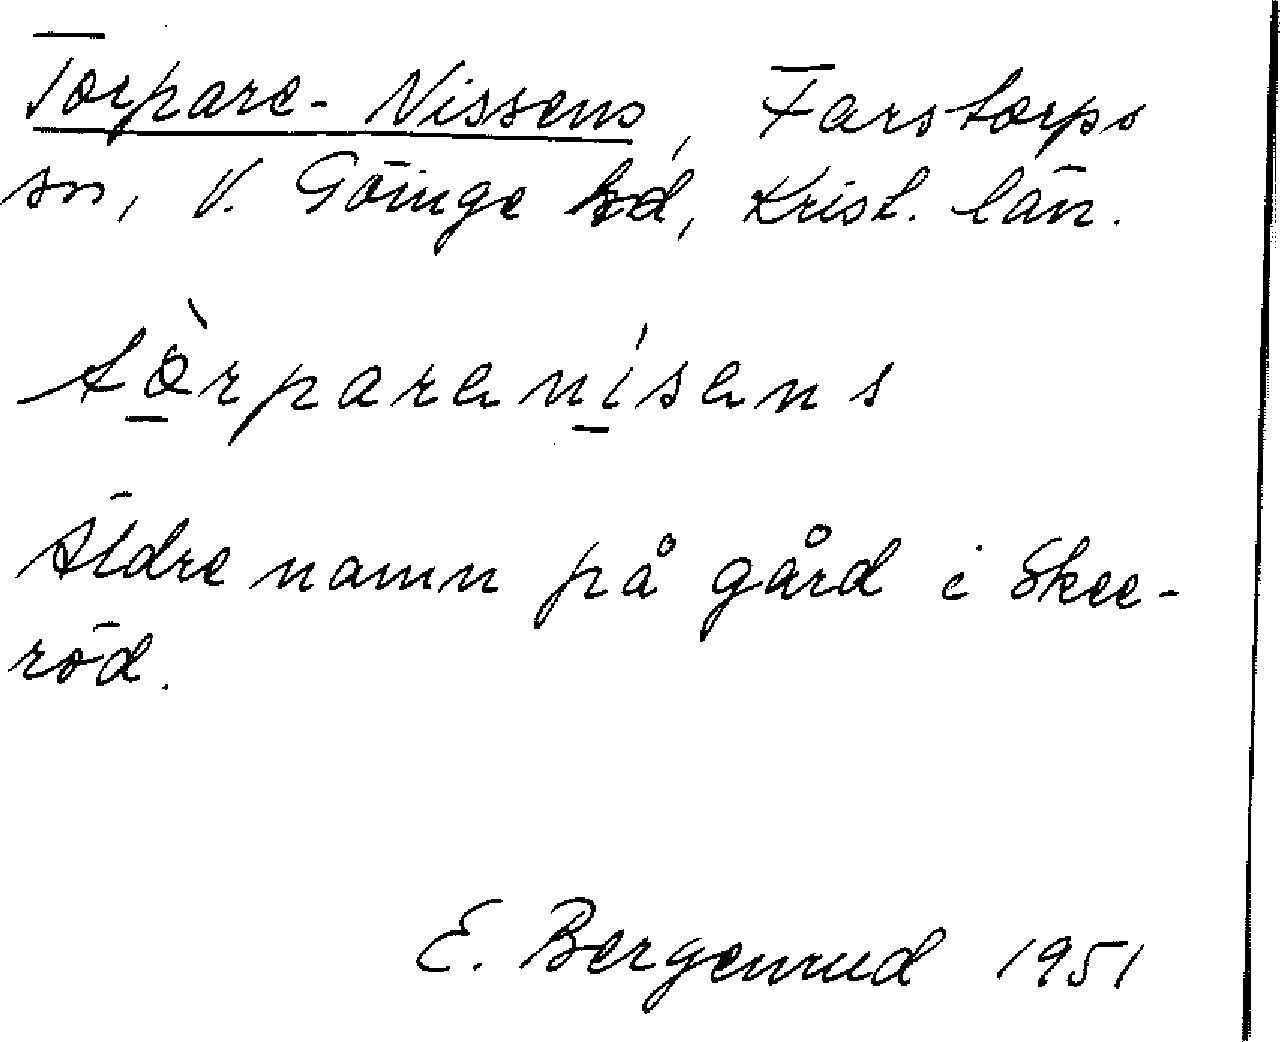 Torpare-Nissens, Farstorps
sn, V. Göinge hd, Krist. län.
tò̱rparen̲ísens
Äldre namn på gård i Skee-
röd.
E. Bergenrud 1951